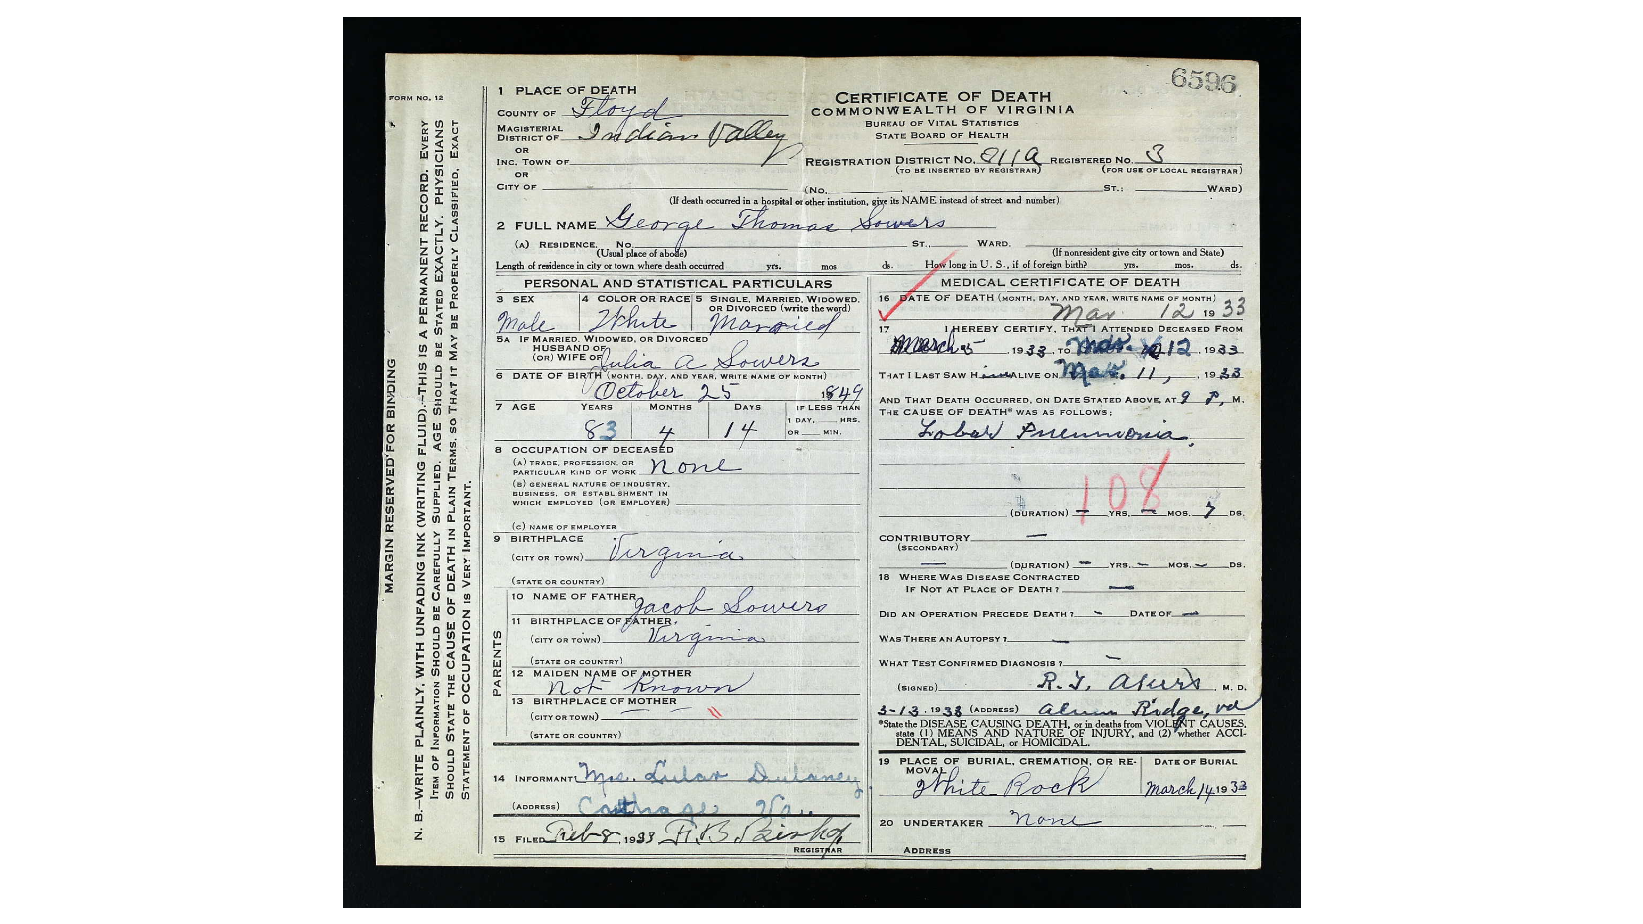 6596
FORM NO. 12
MARGIN RESERVED FOR BINDING
N. B.—WRITE PLAINLY, WITH UNFADING INK (WRITING FLUID).—THIS IS A PERMANENT RECORD. EVERY
ITEM OF INFORMATION SHOULD BE CAREFULLY SUPPLIED. AGE SHOULD BE STATED EXACTLY. PHYSICIANS
SHOULD STATE THE CAUSE OF DEATH IN PLAIN TERMS, SO THAT IT MAY BE PROPERLY CLASSIFIED. EXACT
STATEMENT OF OCCUPATION IS VERY IMPORTANT.
1 PLACE OF DEATH
COUNTY OF Floyd
MAGISTERIAL
DISTRICT OF Indian Valley
OR
INC. TOWN OF
OR
CITY OF
CERTIFICATE OF DEATH
COMMONWEALTH OF VIRGINIA
BUREAU OF VITAL STATISTICS
STATE BOARD OF HEALTH
REGISTRATION DISTRICT NO. 811A REGISTERED NO. 3
(TO BE INSERTED BY REGISTRAR) (FOR USE OF LOCAL REGISTRAR)
(NO. ST.: WARD)
(If death occurred in a hospital or other institution, give its NAME instead of street and number)
2 FULL NAME George Thomas Sowers
(A) RESIDENCE. NO. ST., WARD.
(Usual place of abode) (If nonresident give city or town and State)
Length of residence in city or town where death occurred yrs. mos ds. How long in U. S., if of foreign birth? yrs. mos. ds.
PERSONAL AND STATISTICAL PARTICULARS
3 SEX 4 COLOR OR RACE 5 SINGLE, MARRIED, WIDOWED,
OR DIVORCED (write the word)
Male White Married
5A IF MARRIED, WIDOWED, OR DIVORCED
HUSBAND OF
(OR) WIFE OF Julia A Sowers
6 DATE OF BIRTH (MONTH, DAY, AND YEAR, WRITE NAME OF MONTH)
October 25 1849
7 AGE YEARS MONTHS DAYS IF LESS THAN
1 DAY, HRS.
OR MIN.
83 4 14
8 OCCUPATION OF DECEASED
(A) TRADE, PROFESSION, OR
PARTICULAR KIND OF WORK none
(B) GENERAL NATURE OF INDUSTRY,
BUSINESS, OR ESTABLISHMENT IN
WHICH EMPLOYED (OR EMPLOYER)
(C) NAME OF EMPLOYER
9 BIRTHPLACE
(CITY OR TOWN) Virginia
(STATE OR COUNTRY)
PARENTS
10 NAME OF FATHER Jacob Sowers
11 BIRTHPLACE OF FATHER,
(CITY OR TOWN) Virginia
(STATE OR COUNTRY)
12 MAIDEN NAME OF MOTHER
Not Known
13 BIRTHPLACE OF MOTHER
(CITY OR TOWN)
(STATE OR COUNTRY)
14 INFORMANT Mrs. Lular Dulaney
(ADDRESS) Carthage Va.
15 FILED Feb 8, 1933
REGISTRAR
MEDICAL CERTIFICATE OF DEATH
16 DATE OF DEATH (MONTH, DAY, AND YEAR, WRITE NAME OF MONTH)
Mar 12 1933
17 I HEREBY CERTIFY, THAT I ATTENDED DECEASED FROM
March 5 1933, TO Mar. 12, 1933
THAT I LAST SAW HIM ALIVE ON Mar. 11, 1933
AND THAT DEATH OCCURRED, ON DATE STATED ABOVE, AT 9 P. M.
THE CAUSE OF DEATH* WAS AS FOLLOWS:
Lobar Pneumonia.
108
(DURATION) — YRS. — MOS. 7 DS.
CONTRIBUTORY —
(SECONDARY)
— (DURATION) — YRS. — MOS. — DS.
18 WHERE WAS DISEASE CONTRACTED
IF NOT AT PLACE OF DEATH? —
DID AN OPERATION PRECEDE DEATH? - DATE OF —
WAS THERE AN AUTOPSY? —
WHAT TEST CONFIRMED DIAGNOSIS? —
(SIGNED) R. T. Akers, M. D.
3-13, 1933 (ADDRESS) Alum Ridge, Va
*State the DISEASE CAUSING DEATH, or in deaths from VIOLENT CAUSES,
state (1) MEANS AND NATURE OF INJURY, and (2) whether ACCI-
DENTAL, SUICIDAL, or HOMICIDAL.
19 PLACE OF BURIAL, CREMATION, OR RE-
MOVAL DATE OF BURIAL
White Rock March 14 1933
20 UNDERTAKER None
ADDRESS